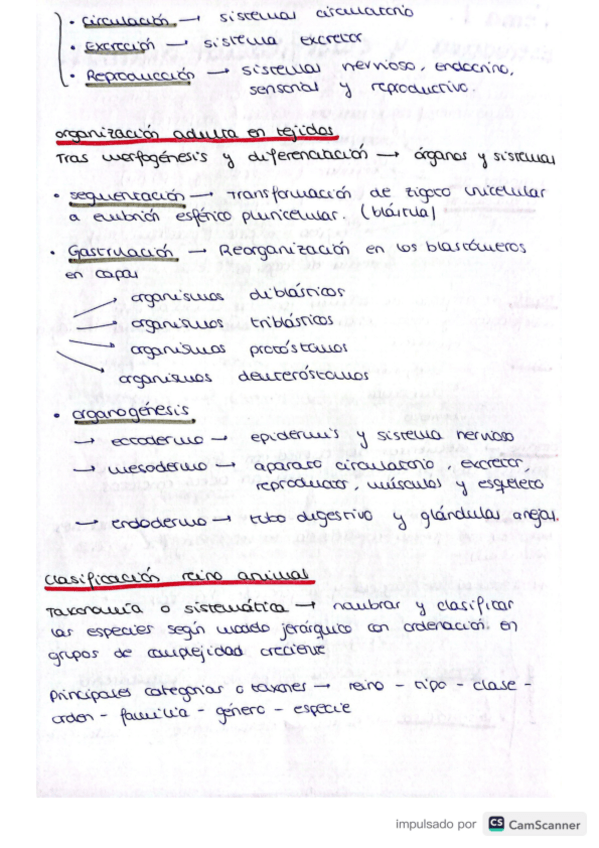 • Circulación → sistema circulatorio
• Excreción → sistema excretor
• Reproducción → sistema nervioso, endocrino,
sensorial y reproductivo.
organización adulta en tejidos
Tras morfogénesis y diferenciación → órganos y sistemas
• segmentación → Transformación de zigoto unicelular
a embrión esférico pluricelular. (blástula)
• Gastrulación — Reorganización en los blastómeros
en capas
organismos diblásticos
organismos triblásticos
organismos protóstomos
organismos deuteróstomos
• organogénesis
→ ectodermo → epidermis y sistema nervioso
→ mesodermo → aparato circulatorio, excretor,
reproductor, músculos y esqueleto
→ endodermo → tubo digestivo y glándulas anejas.
clasificación reino animal
Taxonomía o sistemática → nombrar y clasificar
las especies según modelo jerárquico con ordenación en
grupos de complejidad creciente
Principales categorías o taxones → reino - tipo - clase -
orden - familia - género - especie
impulsado por CS CamScanner